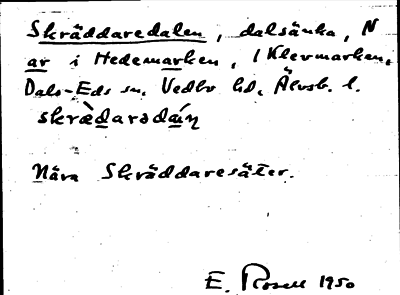 Skräddaredalen, dalsänka, N
ar i Hedemarken, i Klevmarken,
Dals-Eds sn, Vedbo hd, Älvsb. l.
skræ̀darədáṇ
Nära Skräddaresäter.
E. Rosell 1950